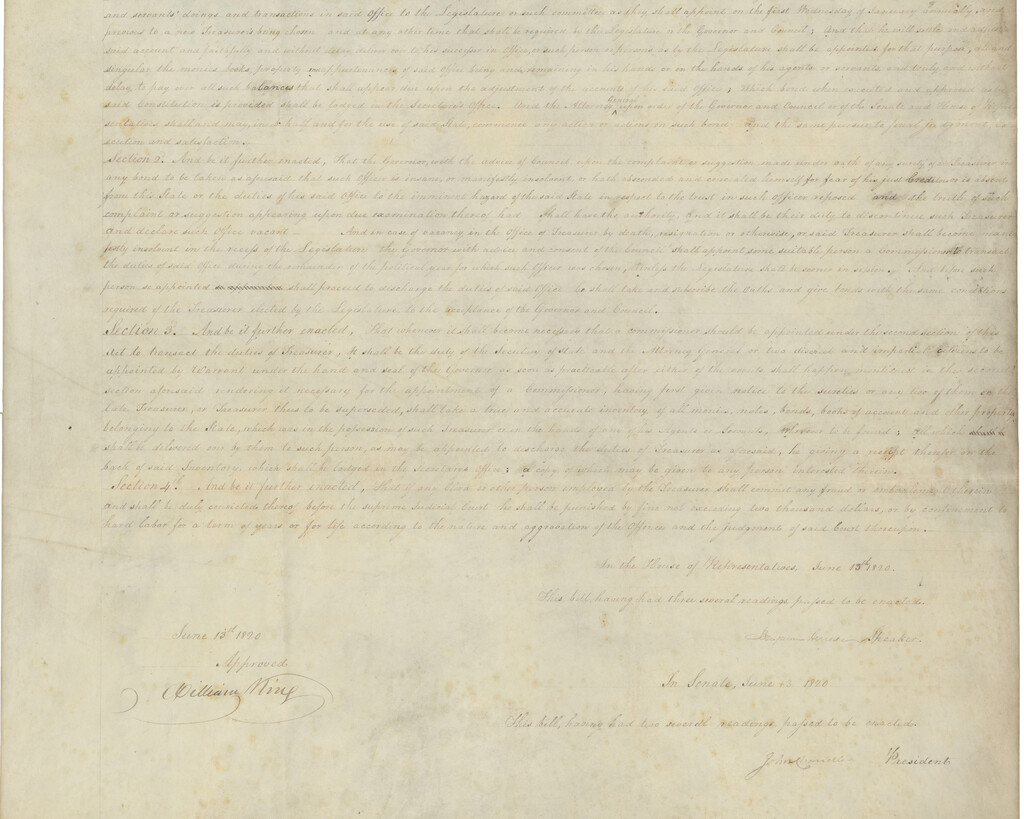 and servants' doings and transactions in said Office to the Legislature or such committee as they shall appoint on the first Wednesday of January annually and
previous to a new Treasurer's being chosen and at any other time that shall be required by the Legislature or the Governor and Council; And that he will settle and adjust
said account and faithfully and without delay deliver over to his successor in Office, or such person or persons, as by the Legislature shall be appointed for that purpose, all and
singular the monies books, property and appurtenances of said Office being and remaining in his hands or in the hands of his agents or servants, and truly and without
delay to pay over all such balances that shall appear due upon the adjustment of the accounts of his said Office; Which bond when executed and approved as by
said Constitution is provided shall be lodged in the Secretary's Office. And the Attorney General upon order of the Governor and Council or of the Senate and House of
shall and may, in behalf and for the use of said State, commence any action or actions on such bond and the same pursue to final Judgment,
and satisfaction.
Section 2. And be it further enacted, That the Governor, with the advice of Council upon the complaint or suggestion made under oath of any surety of a Treasurer in
any bond to be taken as aforesaid that such Officer is insane, or manifestly insolvent, or hath absconded and concealed himself for fear of his just Creditors or is absent
from this State or the duties of his said Office to the imminent hazard of the said State in respect to the trust in such officer reposed and the truth of such
complaint or suggestion appearing upon due examination thereof had Shall have the authority, and it shall be their duty to discontinue such Treasurer
and declare such Office vacant — And in case of vacancy in the Office of Treasurer by death, resignation or otherwise, or said Treasurer shall become
insolvent in the recess of the Legislature the Governor with advice and consent of the Council shall appoint some suitable person a Commissioner to transact
the duties of said Office during the remainder of the political year for which such Officer was chosen, Unless the Legislature shall be sooner in session. And before such
person so appointed shall proceed to discharge the duties of said Office he shall take and subscribe the Oaths and give bonds with the same conditions
required of the Treasurer elected by the Legislature to the acceptance of the Governor and Council.
Section 3. And be it further enacted, That whenever it shall become necessary that a commissioner should be appointed under the second section of this
Act to transact the duties of Treasurer, it shall be the duty of the Secretary of State and the Attorney General or two discreet and impartial citizens to be
appointed by Warrant under the hand and seal of the Governor as soon as practicable after either of the events shall happen mentioned in the second
section aforesaid rendering it necessary for the appointment of a Commissioner, having first given notice to the sureties or any two of them or the
late Treasurer, or Treasurer thus to be superseded, shall take a true and accurate inventory of all monies, notes, bonds, books of account and other property
belonging to the State, which are in the possession of such Treasurer or in the hands of any of his Agents or Servants, wherever to be found; all which
shall be delivered over by them to such person, as may be appointed to discharge the duties of Treasurer as aforesaid, he giving a receipt therefor on the
back of said Inventory, which shall be lodged in the Secretary's Office; a copy of which may be given to any person interested therein.
Section 4th. And be it further enacted, That if any Clerk or other person employed by the Treasurer shall commit any fraud or embezzlement therein
and shall be duly convicted thereof before the supreme Judicial Court he shall be punished by fine not exceeding two thousand dollars, or by confinement to
hard labor for a term of years or for life according to the nature and aggravation of the Offence and the Judgment of said Court thereupon.
In the House of Representatives, June 13th 1820.
This bill, having had three several readings, passed to be enacted.
Speaker.
June 13th 1820
Approved
William King
In Senate, June 13 1820
This bill, having had two several readings, passed to be enacted.
John President